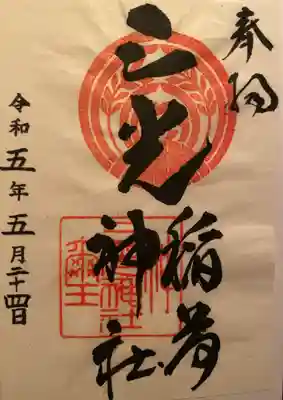 奉拝
三光稲荷
神社
令和五年五月二十四日